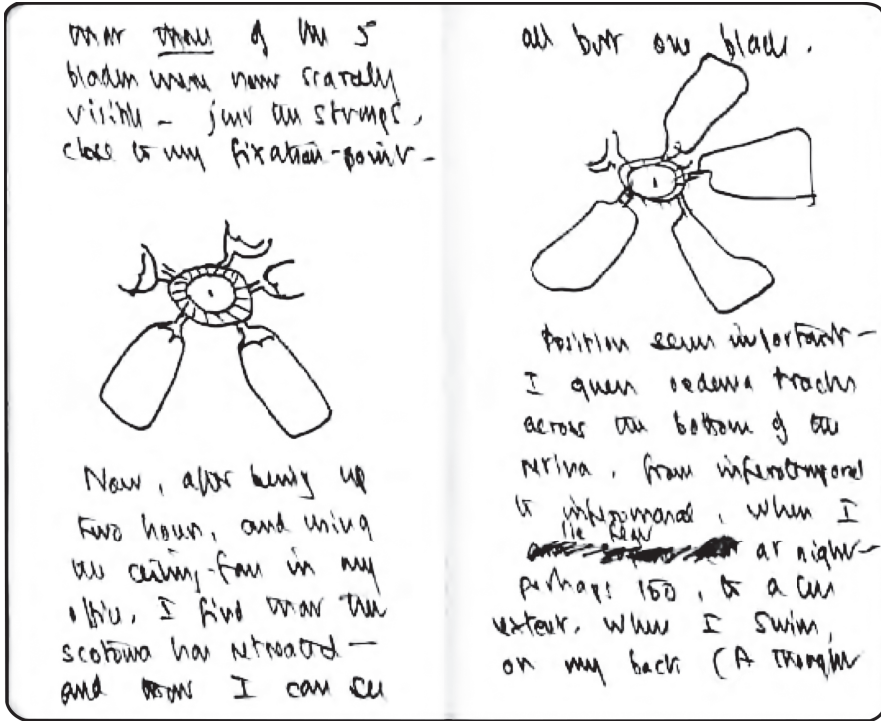 that three of the 5
blades were now scarcely
visible – just the stumps,
close to my fixation-point –
Now, after being up
two hours, and using
the ceiling-fan in my
office, I find that the
scotoma has retreated —
and now I can see
all but one blade.
Position seems important –
I guess oedema tracks
across the bottom of the
retina, from inferotemporal
to inferonasal, when I
lie at night –
perhaps too, to a
extent, when I swim,
on my back (A thought